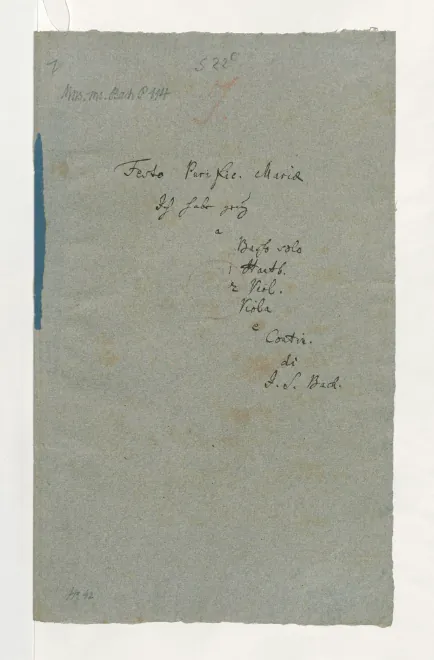 1
522
Mus. ms. Bach P 114
Festo Purific. Mariæ
Ich habe genug
a
Basso solo
1 Hautb.
2 Viol.
Viola
e
Contin.
di
J. S. Bach.